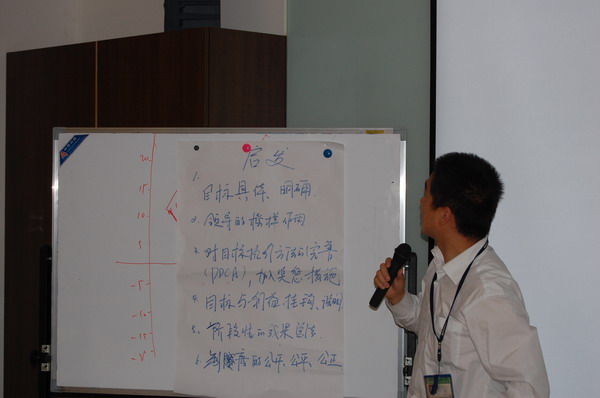 启发
1. 目标具体、明确
2. 领导的榜样作用
3. 对目标 方法的完善
(PDCA), 加 应急措施
4. 目标与利益挂钩、说明
5. 阶段性的效果总结
6. 制度的公平、公平、公正
20
15
10
5
-5
-10
-15